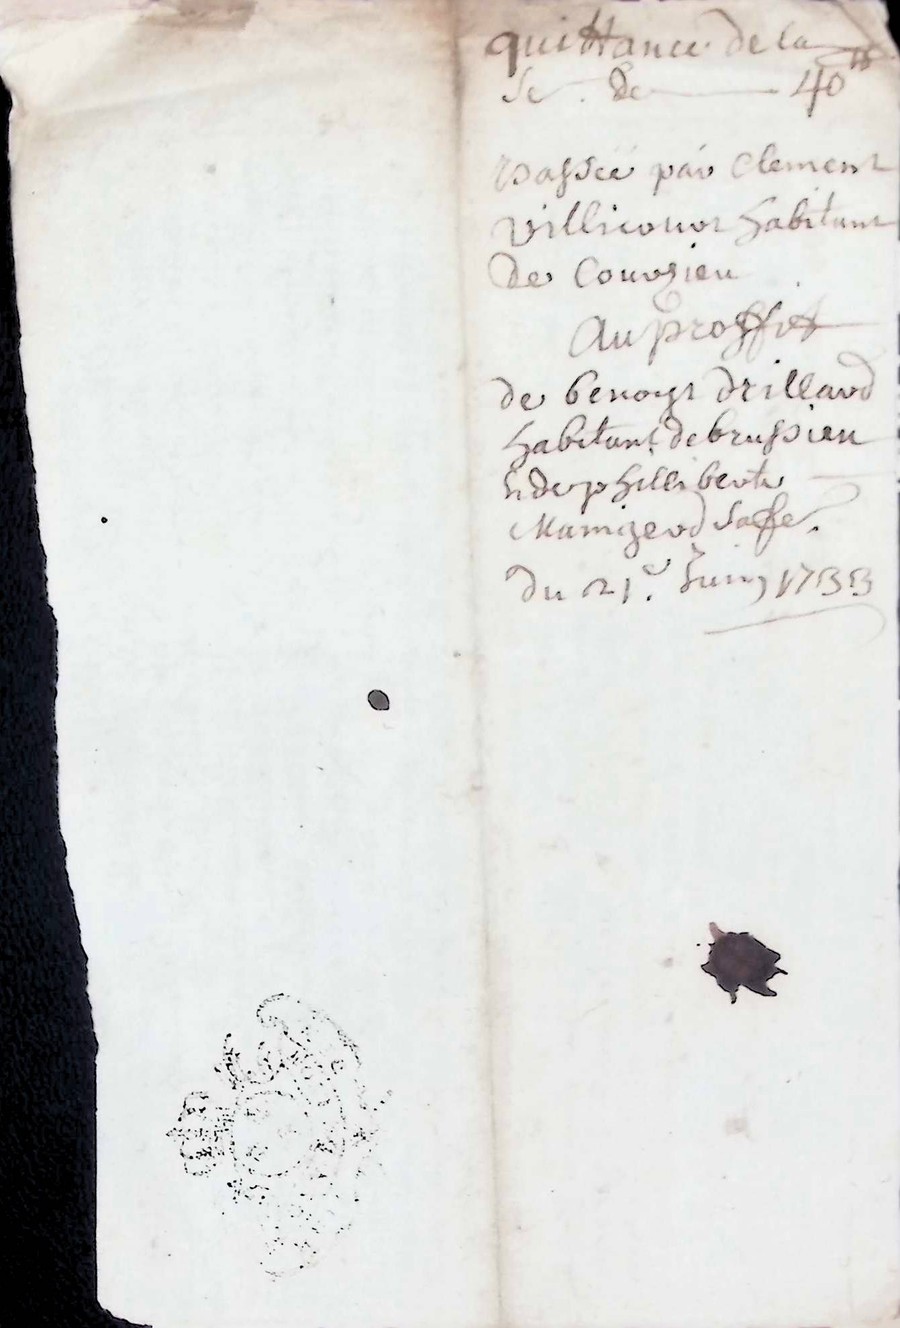 quittance de la
Se. de 40 ₶
passée par Clement
habitant
de Courzieu
Au proffit
de benoyt drillard
habitant de brussieu
& de philliberte
sa fe.
du 21e Juin 1733